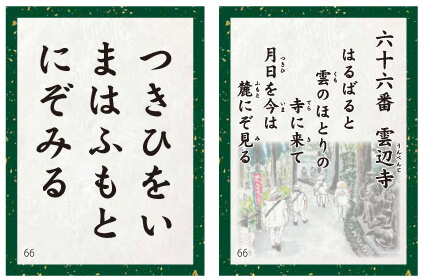 つきひをい
まはふもと
にぞみる
66
六十六番 雲辺寺
うんぺんじ
はるばると
雲のほとりの
くも
寺に来て
てら き
月日を今は
つきひ いま
麓にぞ見る
ふもと み
66